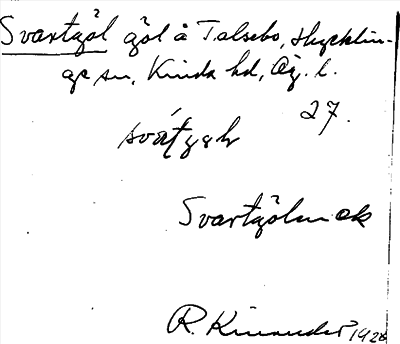 Svartgöl göl å Talsebo, Hycklin-
ge sn, Kinda hd, Ög. l.
27.
Svartgölen ok
R. Kinander 1928